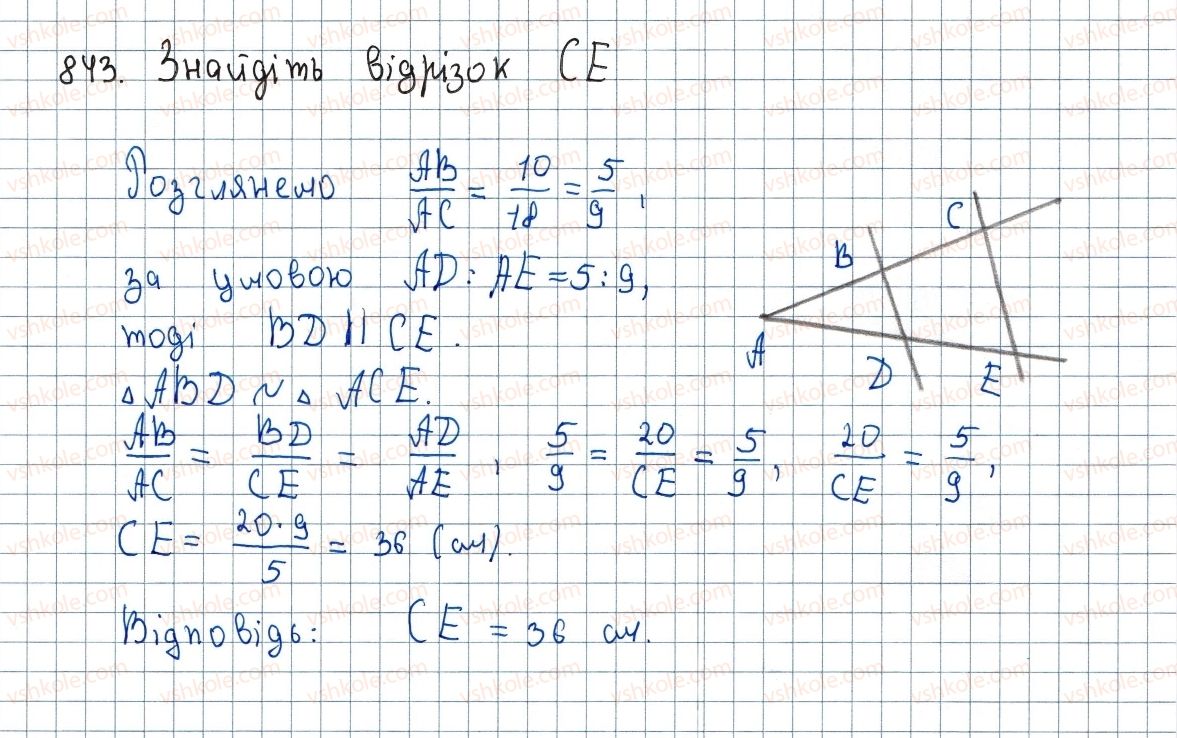 843. Знайдіть відрізок CE
Розглянемо AB/AC = 10/18 = 5/9,
за умовою AD : AE = 5 : 9,
тоді BD || CE.
△ABD ~ △ ACE.
AB/AC = BD/CE = AD/AE, 5/9 = 20/CE = 5/9, 20/CE = 5/9,
CE = 20·9/5 = 36 (см).
Відповідь: CE = 36 см.
C
B
A
D
E
vshkole.com